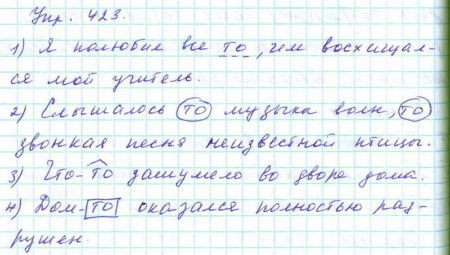 Упр. 423.
1) Я полюбил все то, чем восхищал-
ся мой учитель.
2) Слышалось то музыка волн, то
звонкая песня неизвестной птицы.
3) Что-то зашумело во дворе дома.
4) Дом-то оказался полностью раз-
рушен.